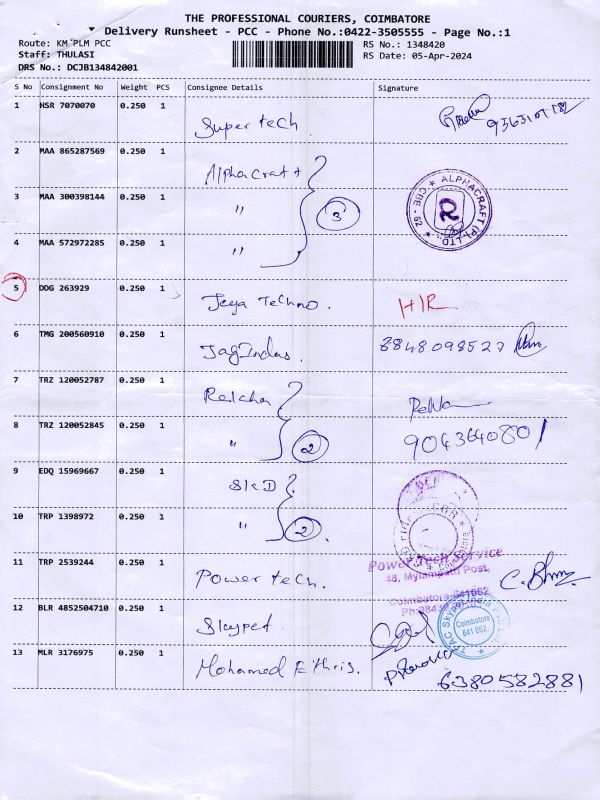 THE PROFESSIONAL COURIERS, COIMBATORE
Delivery Runsheet - PCC - Phone No.:0422-3505555 - Page No.:1
Route: KM PLM PCC
RS No.: 1348420
Staff: THULASI
RS Date: 05-Apr-2024
DRS No.: DCJB134842001
S No Consignment No Weight PCS Consignee Details Signature
1 HSR 7070070 0.250 1 Supertech
2 MAA 865287569 0.250 1 Alphacraft
3 MAA 300398144 0.250 1 " 3
ALPHACRAFT (P) LTD
CBE - 62
R
4 MAA 572972285 0.250 1 "
5 DDG 263929 0.250 1 Jeya Techno. H/R
6 TMG 200560910 0.250 1 JagIndas. 8848098527
7 TRZ 120052787 0.250 1
8 TRZ 120052845 0.250 1 " 2 9043640801
9 EDQ 15969667 0.250 1 SKD
10 TRP 1398972 0.250 1 " 2
11 TRP 2539244 0.250 1 Power tech.
Power Tech Service
48, Mylampatti Post,
Coimbatore-641062
C.
12 BLR 4852504710 0.250 1 Skypet.
Coimbatore
641 062.
13 MLR 3176975 0.250 1 Mohamed Eithris. 6380582881